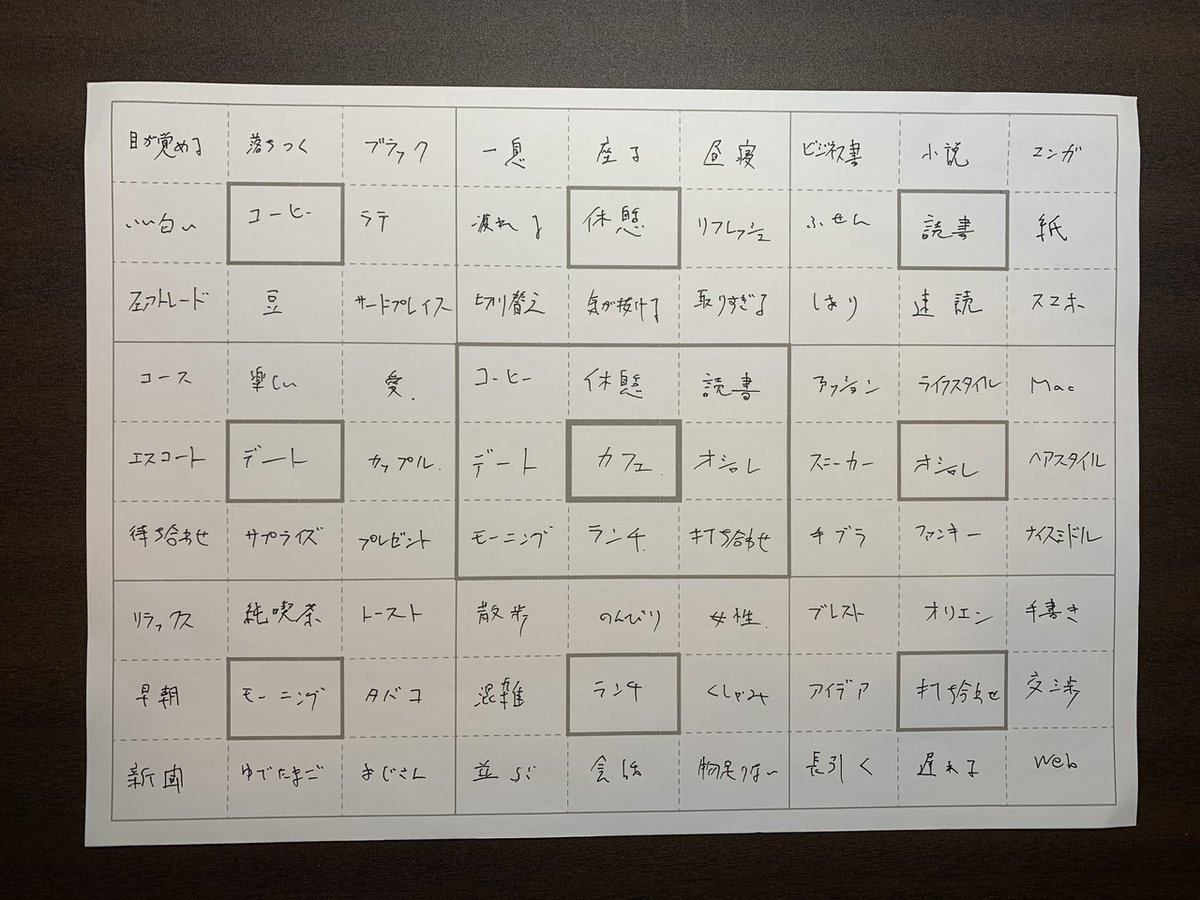 目が覚める 落ちつく ブラック 一息 座る 昼寝 ビジネス書 小説 マンガ
いい匂い コーヒー ラテ 疲れる 休憩 リフレッシュ ふせん 読書 紙
フェアトレード 豆 サードプレイス 切り替え 気が抜ける 取りすぎる しおり 速読 スマホ
コース 楽しい 愛. コーヒー 休憩 読書 ファッション ライフスタイル Mac
エスコート デート カップル. デート カフェ. オシャレ スニーカー オシャレ ヘアスタイル
待ち合わせ サプライズ プレゼント モーニング ランチ. 打ち合わせ 手ブラ ファンキー ナイスミドル
リラックス 純喫茶 トースト 散歩 のんびり 女性. ブレスト オリエン 手書き
早朝 モーニング タバコ 混雑 ランチ くしゃみ アイデア 打ち合わせ 交渉
新聞 ゆでたまご おじさん 並ぶ 会話 物足りない 長引く 遅れる Web